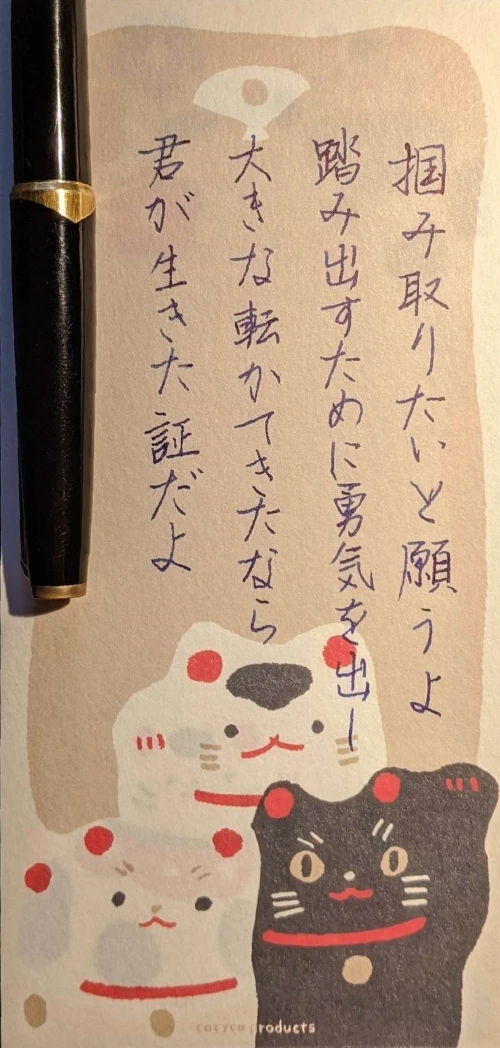 掴み取りたいと願うよ
踏み出すために勇気を出し
大きな転かてきたなら
君が生きた証だよ
cozyca products